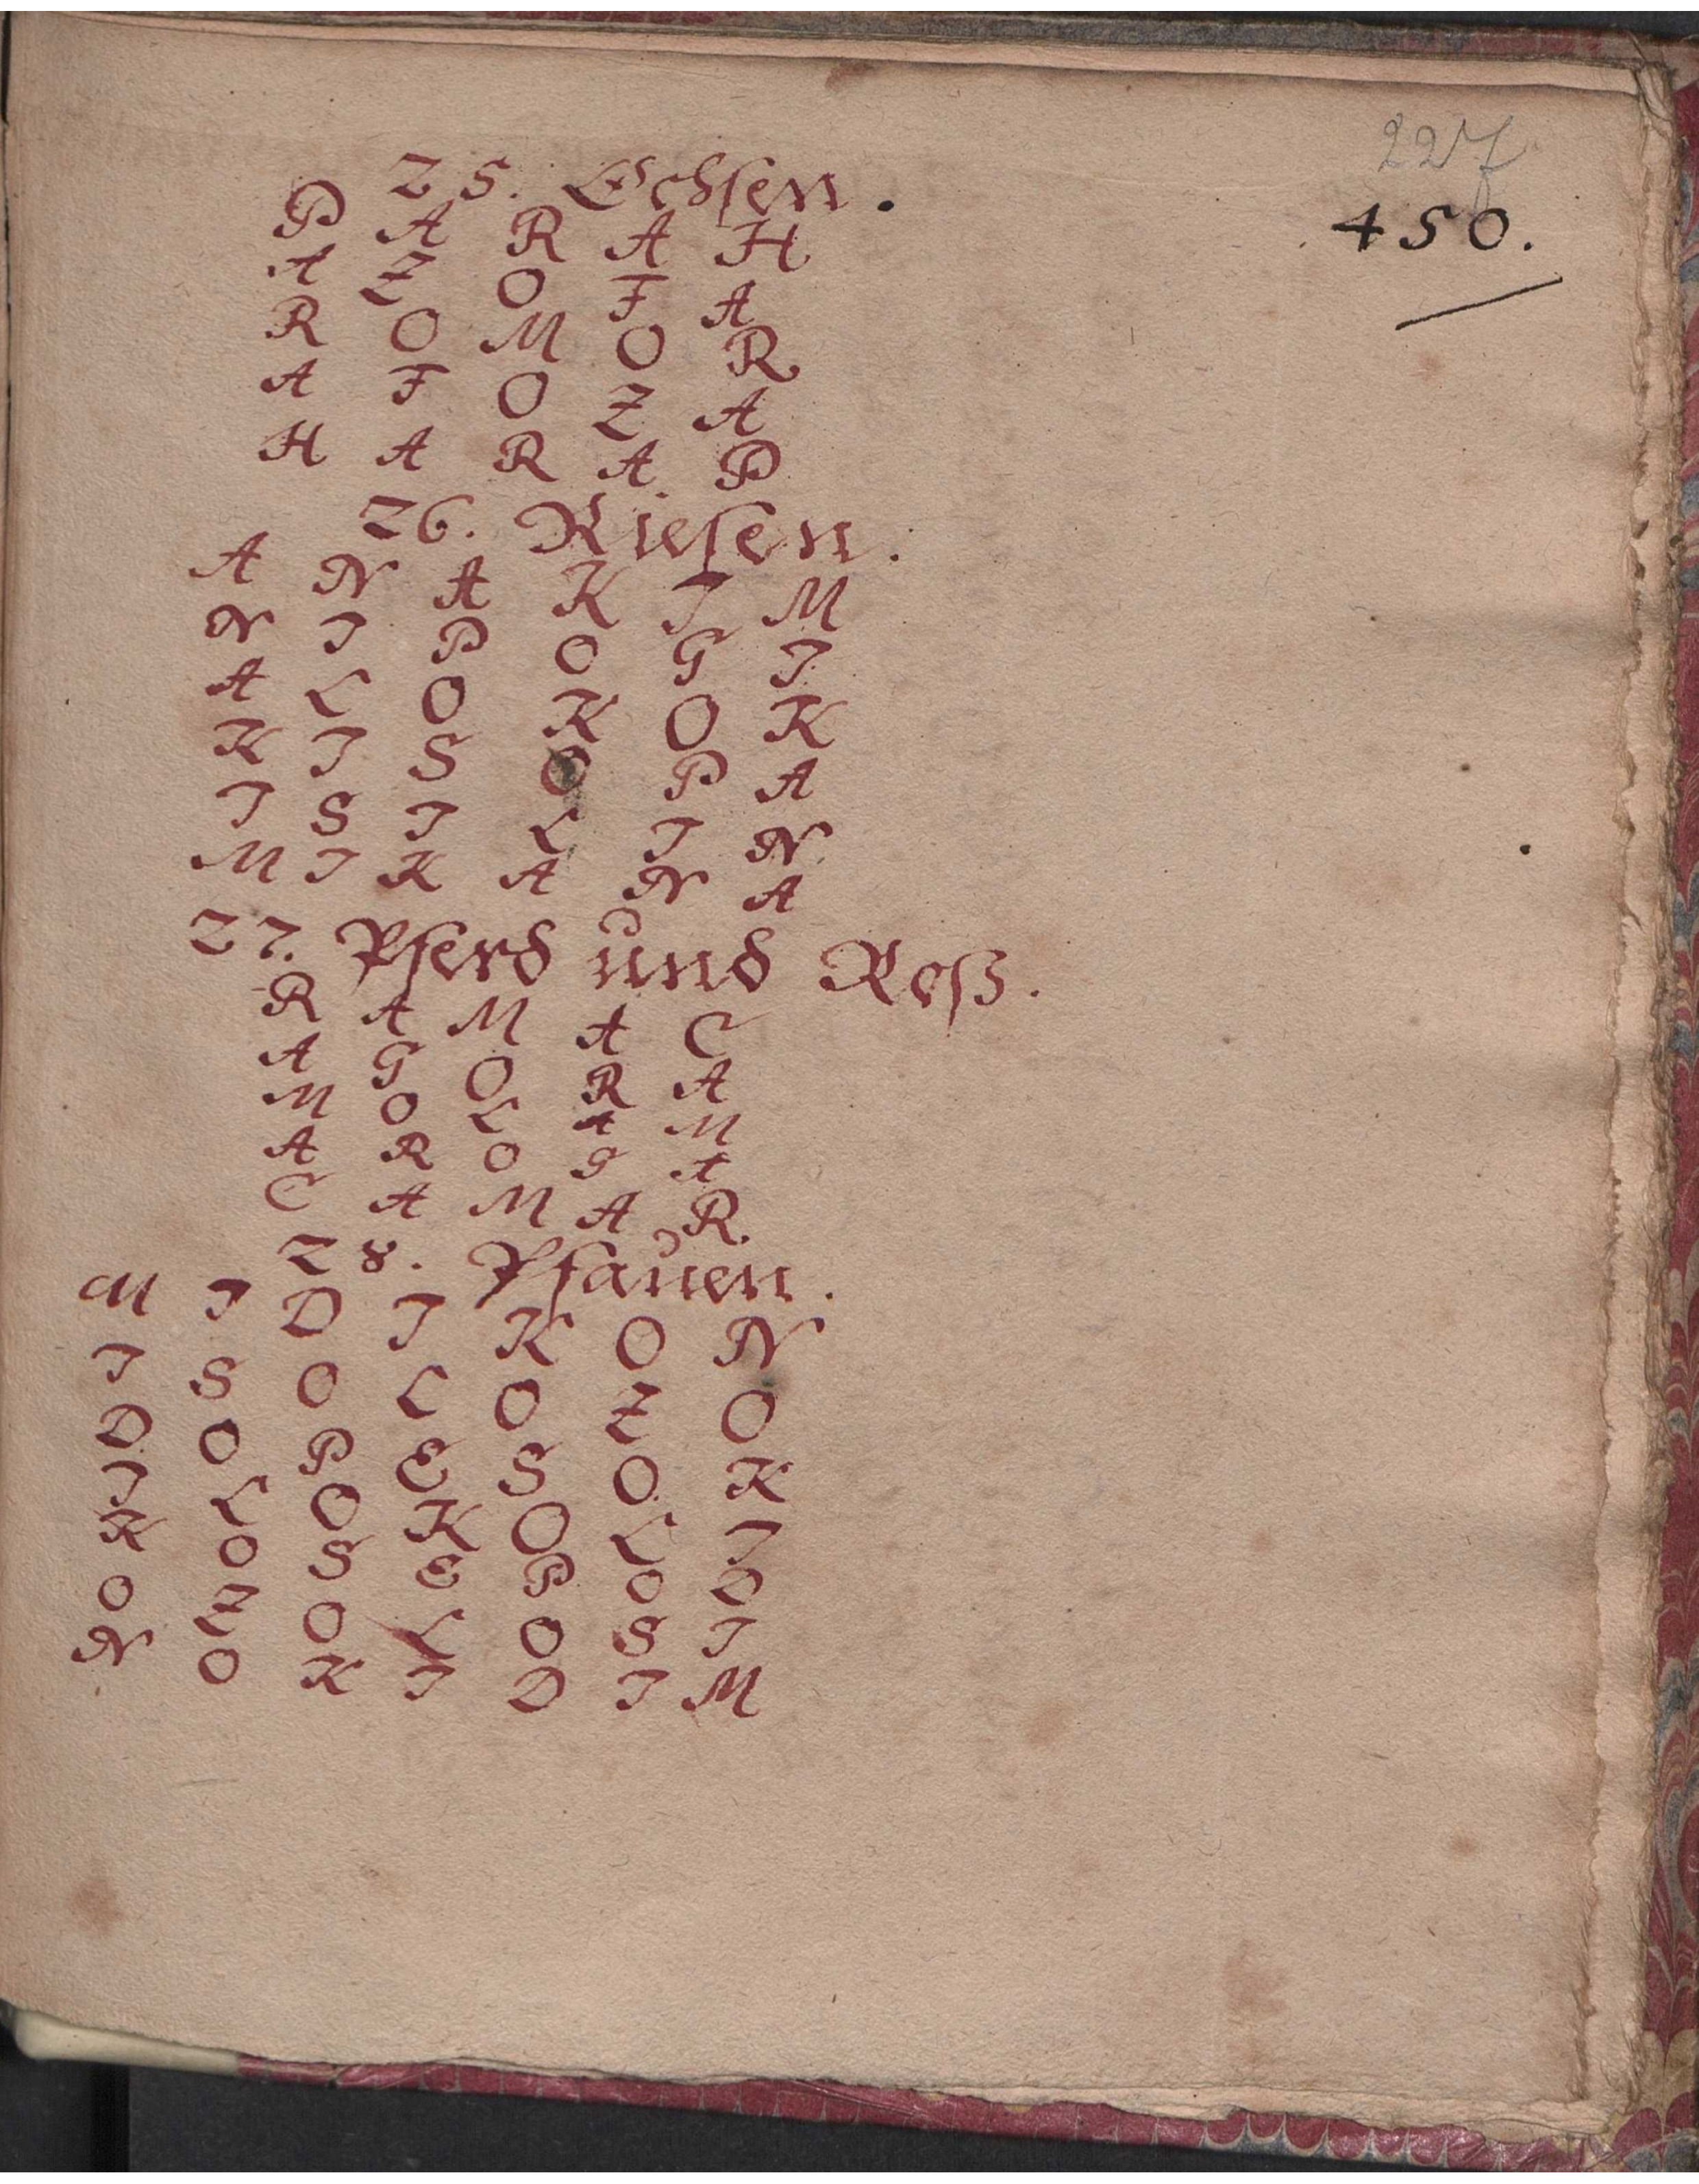 227
450.
25. Ochsen.
P A R A H
A Z O F A
R O M O R
A F O Z A
H A R A P
26. Riesen.
A N A K I M
N I P O G I
A L O K O K
K I S O P A
I S I L I N
M I K A N A
27. Pferd und Roß.
R A M A C
A G O R A
M O L A M
A R O G A
C A M A R
28. Pfauen.
M I D I K O N
I S O L O Z O
D O P E S O K
I L O K O L I
K O S E P O D
O Z O L O S I
N O K I D I M